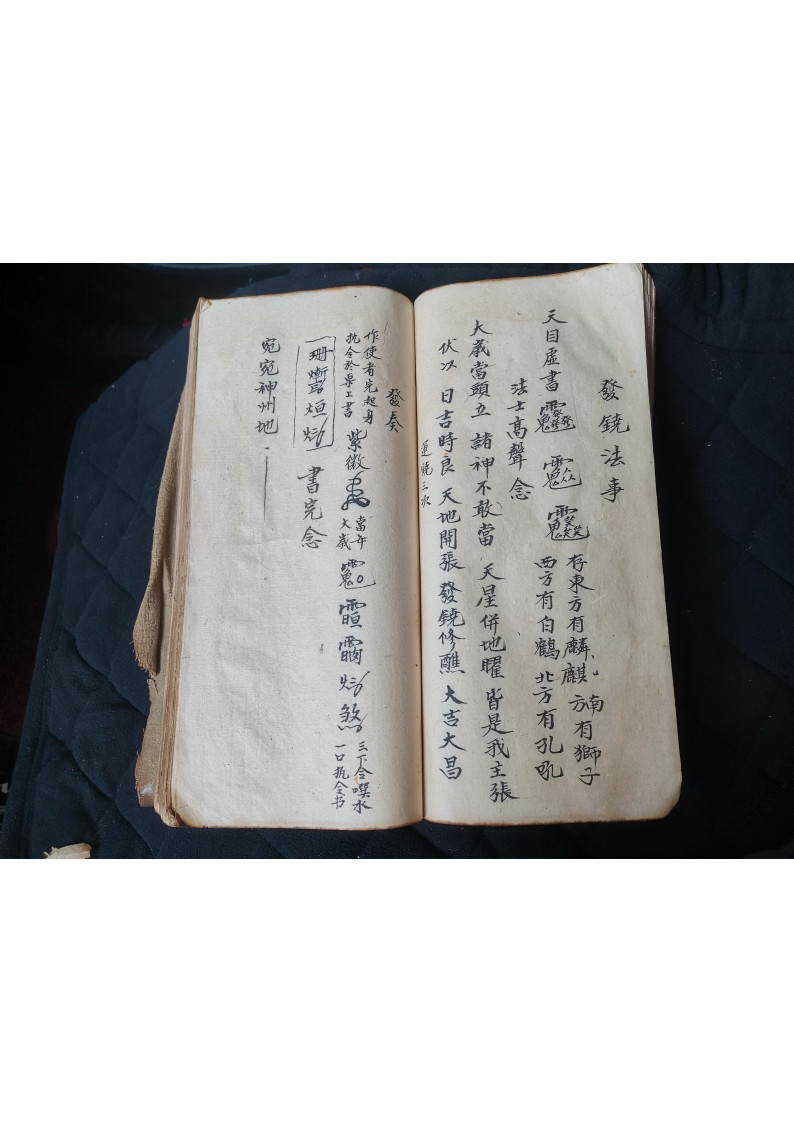 發鐃法事
天目虛書
存東方有麟麒南方有獅子
西方有白鶴北方有孔
法士高聲念
大歲當頭立 諸神不敢當 天星併地曜 皆是我主張
伏以 日吉時良 天地開張 發鐃修醮 大吉大昌
三次
發奏
作使者先起身
执令於桌上書
紫微
當年
大歲
煞
三下令噀水
一口执全书
書完念
宛宛神州地